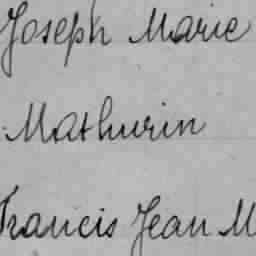 Joseph Marie
Mathurin
Francis Jean M